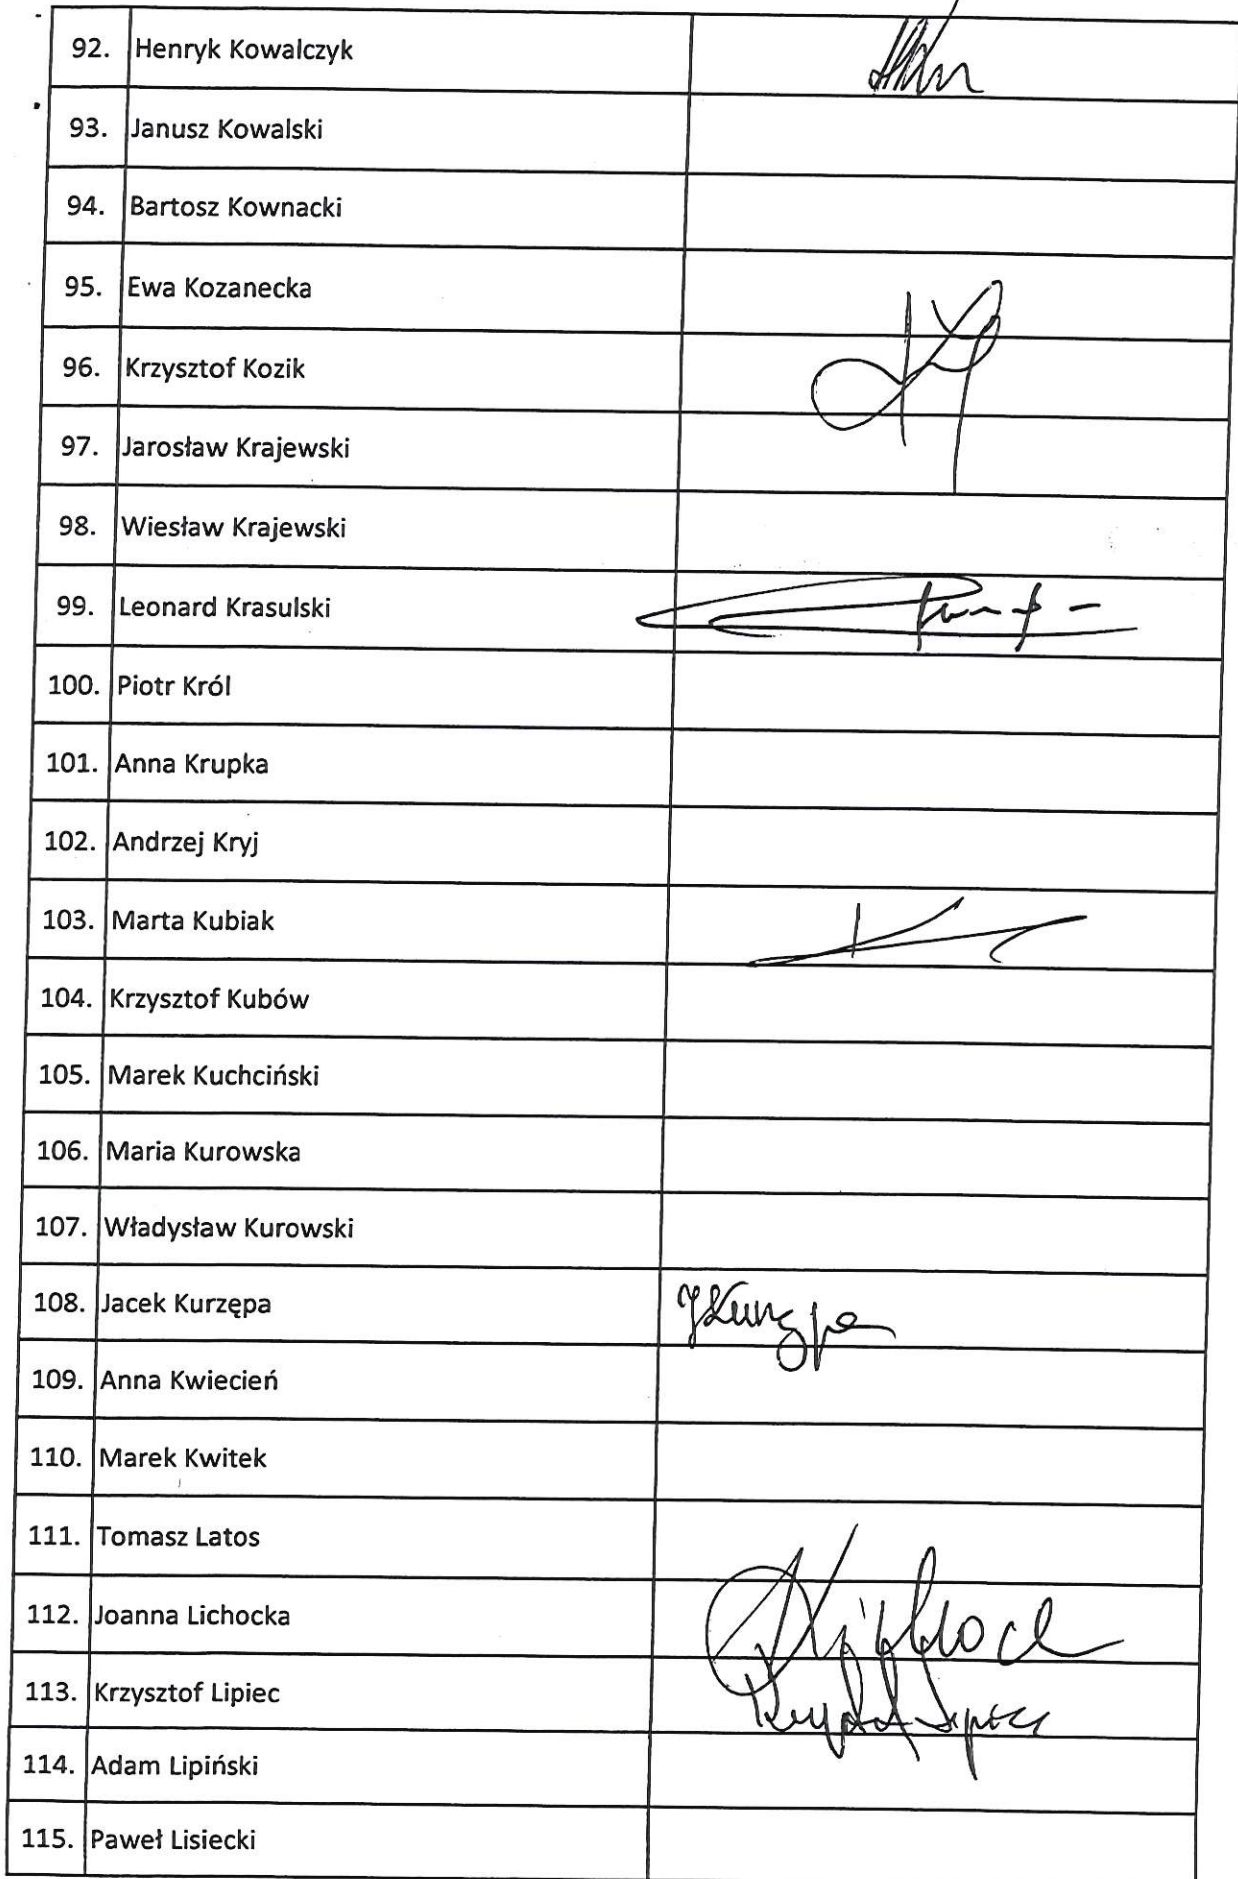 92. Henryk Kowalczyk
93. Janusz Kowalski
94. Bartosz Kownacki
95. Ewa Kozanecka
96. Krzysztof Kozik
97. Jarosław Krajewski
98. Wiesław Krajewski
99. Leonard Krasulski
100. Piotr Król
101. Anna Krupka
102. Andrzej Kryj
103. Marta Kubiak
104. Krzysztof Kubów
105. Marek Kuchciński
106. Maria Kurowska
107. Władysław Kurowski
108. Jacek Kurzępa JKurzępa
109. Anna Kwiecień
110. Marek Kwitek
111. Tomasz Latos
112. Joanna Lichocka
113. Krzysztof Lipiec Krzysztof Lipiec
114. Adam Lipiński
115. Paweł Lisiecki